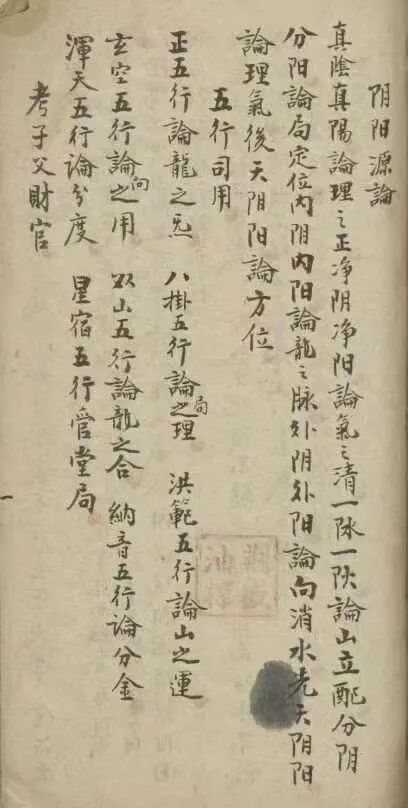 阴阳源論
真陰真陽論理之正净阴净阳論氣之清一一論山立配分阴
分阳論局定位内阴内阳論龍之脉外阴外阳論向消水先天阴阳
論理氣後天阴阳論方位
五行司用
正五行論龍之炁 八掛五行論局之理 洪範五行論山之運
玄空五行論向之用 双山五行論龍之合 納音五行論分金
渾天五行論分度 星宿五行管堂局
考子父財官